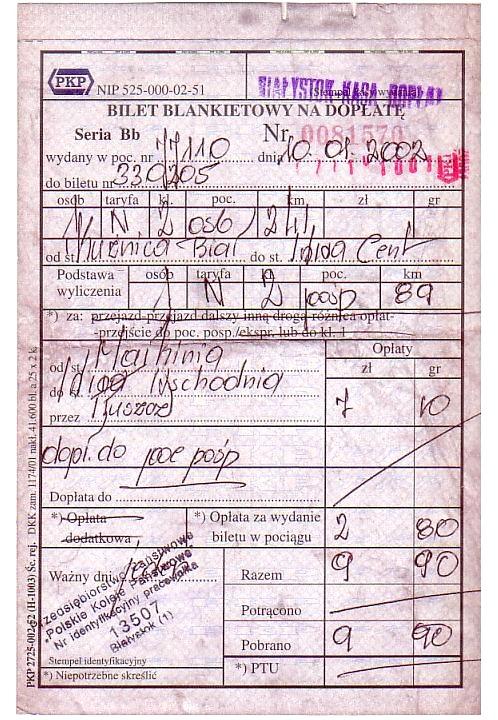 PKP NIP 525-000-02-51
BIAŁYSTOK KASA DOPŁAT
BILET BLANKIETOWY NA DOPŁATĘ
Seria Bb Nr 0081570
wydany w poc. nr 77110 dnia 10.01.2002
do biletu nr 330205
osób taryfa kl. poc. km zł gr
1 N 2 osb 241
od st. Kuźnica Biał do st. Łódź Cent
Podstawa wyliczenia osób taryfa kl. poc. km
1 N 2 posp 89
*) za: przejazd-przejazd dalszy inną drogą-różnica opłat-
-przejście do poc. posp./ekspr. lub do kl. 1
Opłaty
od st. Małkinia zł gr
do st. Wschodnia
przez Tłuszcz 7 10
dopł. do poc posp
Dopłata do
*) Opłata dodatkowa *) Opłata za wydanie biletu w pociągu 2 80
Ważny dnia Razem 9 90
Przedsiębiorstwo Państwowe
"Polskie Koleje Państwowe"
Nr identyfikacyjny pracownika
13507
Białystok (1)
Potrącono
Pobrano 9 90
Stempel identyfikacyjny
*) PTU
*) Niepotrzebne skreślić
PKP 2725-002-52 (H-1003) Śc. rej. DKK zam. 1174/01 nakł. 41.600 bl. a 25 x 2 k.